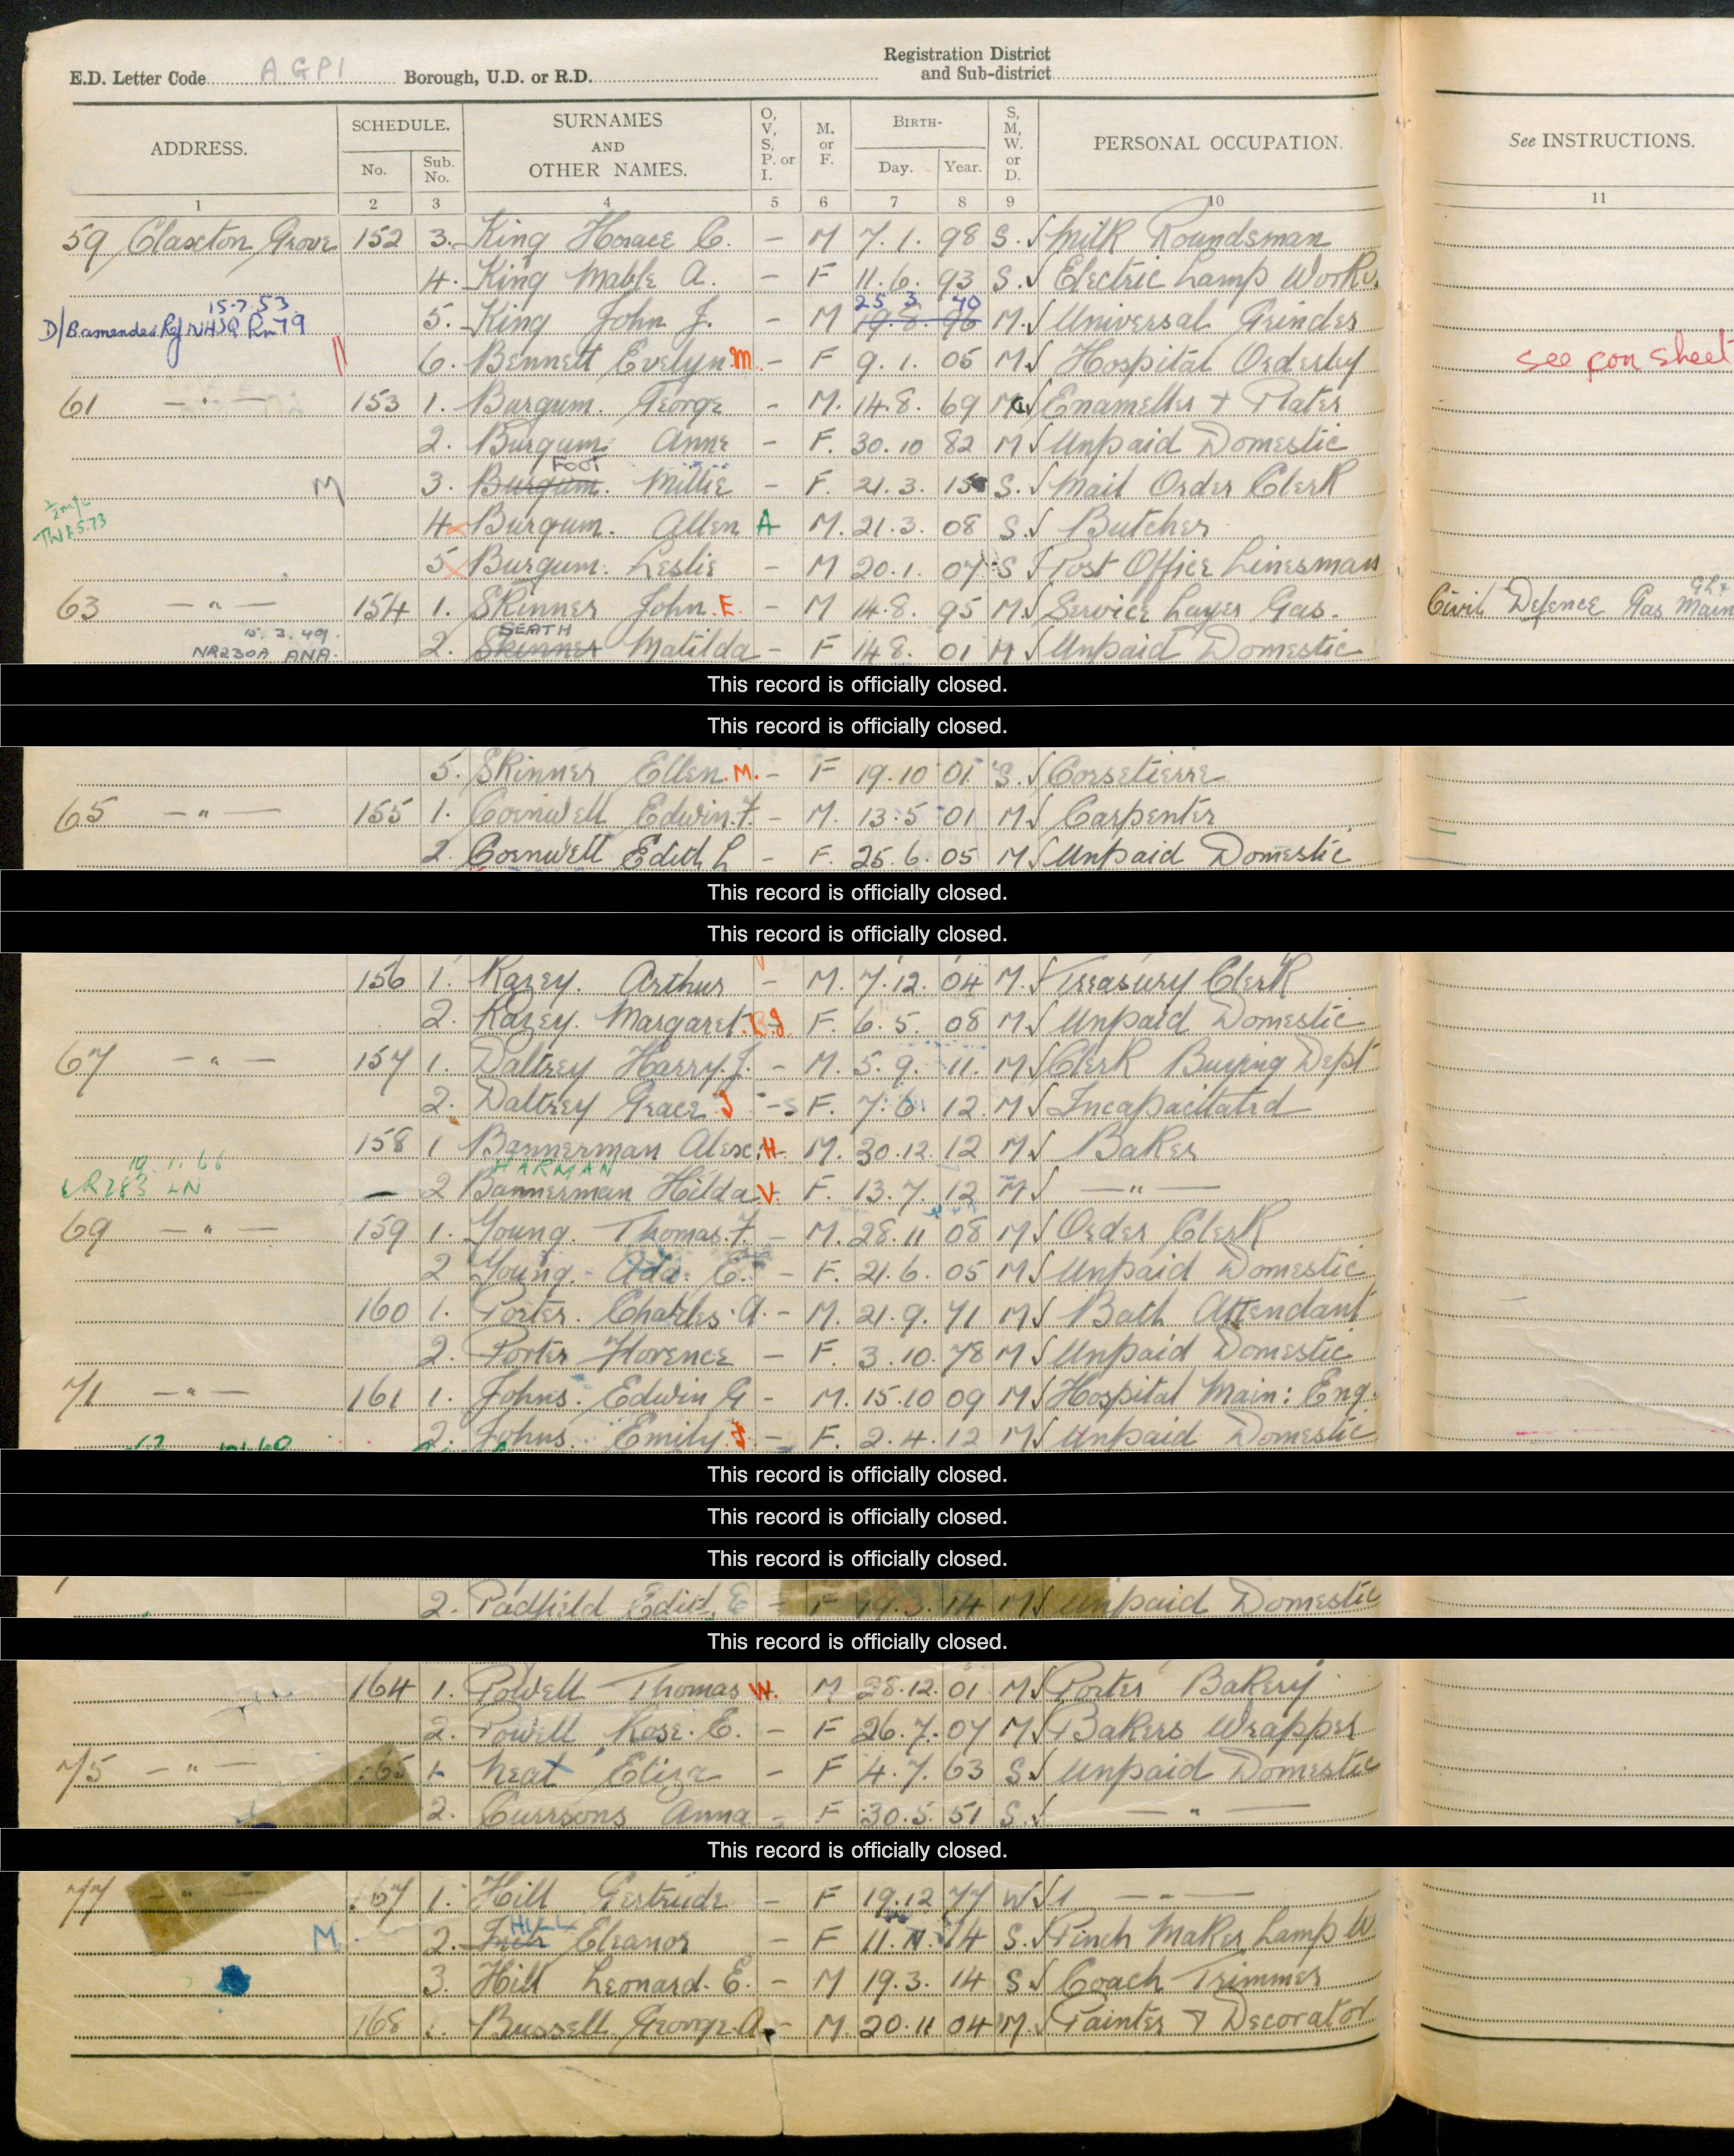 E.D. Letter Code AGPI Borough, U.D. or R.D. Registration District and Sub-district
ADDRESS. SCHEDULE. No. Sub. No. SURNAMES AND OTHER NAMES. O, V, S, P. or I. M. or F. BIRTH- Day. Year. S, M, W. or D. PERSONAL OCCUPATION. See INSTRUCTIONS.
1 2 3 4 5 6 7 8 9 10 11
59 Claxton Grove 152 3. King Horace C. - M 7.1. 98 S. √ Milk Roundsman
4. King Mable A. - F 11.6. 93 S. √ Electric Lamp Works.
15.7.53 25 3 70
D/B amended Rm 79 5. King John J. - M 19.8. 96 M. √ Universal Grinder
6. Bennett Evelyn M. - F 9.1. 05 M √ Hospital Orderly See con sheet
61 - " - 153 1. Burgum. George - M. 14.8. 69 M √ Enameller + Plater
2. Burgum. Anne - F. 30.10 82 M √ Unpaid Domestic
FOOT
M 3. Burgum. Millie - F. 21.3. 15 S. √ Mail Order Clerk
4 Burgum. Allen A M. 21.3. 08 S. √ Butcher
5 Burgum. Leslie - M 20.1. 07 S √ Post Office Linesman
63 - " - 154 1. Skinner John. E. - M 14.8. 95 M √ Service Layer Gas. Civil Defence Gas Main
15.3.49. SEATH
NR230A ANA. 2. Skinner Matilda - F 14.8. 01 M √ Unpaid Domestic
This record is officially closed.
This record is officially closed.
5. Skinner Ellen. M. - F 19.10 01 S. √ Corsetierre
65 - " - 155 1. Cornwell Edwin. F. - M. 13.5 01 M √ Carpenter
2. Cornwell Edith L - F. 25.6. 05 M √ Unpaid Domestic
This record is officially closed.
This record is officially closed.
156 1. Kazey. Arthur - M. 7.12. 04 M. √ Treasury Clerk
2. Kazey. Margaret. F. 6.5. 08 M √ Unpaid Domestic
67 - " - 157 1. Daltrey Harry. J. - M. 5.9. 11. M √ Clerk Buying Dept
2. Daltrey Grace J - F. 7.6. 12. M √ Incapacitated
158 1 Bannerman Alex. H. M. 30.12. 12 M √ Baker
19.1.66 HARMAN
LR283 LN - 2 Bannerman Hilda V. F. 13.7. 12 M √ - " -
69 - " - 159 1. Young. Thomas. F. - M. 28.11 08 M √ Order Clerk
2 Young. Ada. E. - F. 21.6. 05 M √ Unpaid Domestic
160 1. Porter. Charles. A. - M. 21.9. 71 M √ Bath Attendant
2. Porter Florence - F. 3.10. 78 M √ Unpaid Domestic
71 - " - 161 1. Johns. Edwin G - M. 15.10 09 M √ Hospital Main: Eng.
2. Johns. Emily. J. - F. 2.4. 12 M √ Unpaid Domestic
This record is officially closed.
This record is officially closed.
This record is officially closed.
2. Padfield Edith E - F 19.3. 14 M √ Unpaid Domestic
This record is officially closed.
164 1. Powell Thomas W. M 28.12. 01 M √ Porter Bakery
2. Powell Rose. E. - F 26.7. 07 M √ Bakers Wrapper
75 - " - 165 1. Neat Eliza - F 4.7. 63 S √ Unpaid Domestic
2. Currsons Anna - F 30.5. 51 S. √ - " -
This record is officially closed.
77 - " - 167 1. Hill Gertrude - F 19.12 77 W √ - " -
HILL
M 2. Eleanor - F 11.11. 14 S. √ Pinch Maker Lamp W
3. Hill Leonard. E. - M 19.3. 14 S √ Coach Trimmer
168 1. Bussell George. A. - M. 20.11 04 M. √ Painter & Decorator